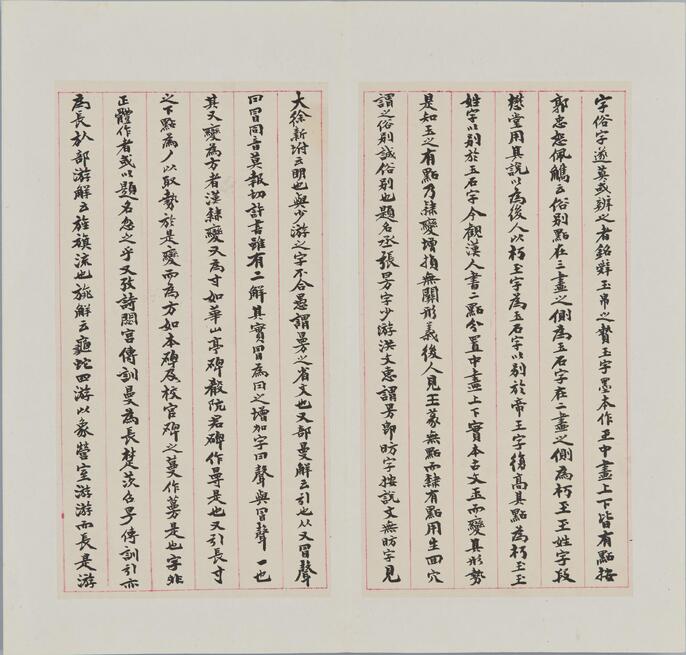 字俗字遂莫或辨之者銘辭玉帛之贄玉字墨本作玊中畫上下皆有點按
郭忠恕佩觿云俗別點在三畫之側為玉石字在二畫之側為朽王王姓字段
懋堂用其說以為後人以朽王字為玉石字以別於帝王字復高其點為朽王玉
姓字以別於玉石字今觀漢人書二點分置中畫上下實本古文玉而變其形勢
是知玉之有點乃隸變增損無關形義後人見玉篆無點而隸有點用生回穴
謂之俗別誠俗別也題名丞張昉字少游洪文惠謂昉即昉字按說文無昉字見
大徐新附云明也與少游之字不合愚謂昉之省文也又部曼解云引也从又冒聲
冃冒同音莫報切許書雖有二解其實冒為冃之增加字冃聲與冒聲一也
其又變為方者漢隸變又為寸如華山亭碑殽阬君碑作㝵是也又引長寸
之下點為丿以取勢於是變而為方如本碑及校官碑之蔓作蔓是也字非
正體作者或以題名忽之乎又攷詩閟宮傳訓曼為長楚茨召旻傳訓引亦
為長㫃部游解云旌旗流也旐解云龜蛇四游以象營室游游而長是游